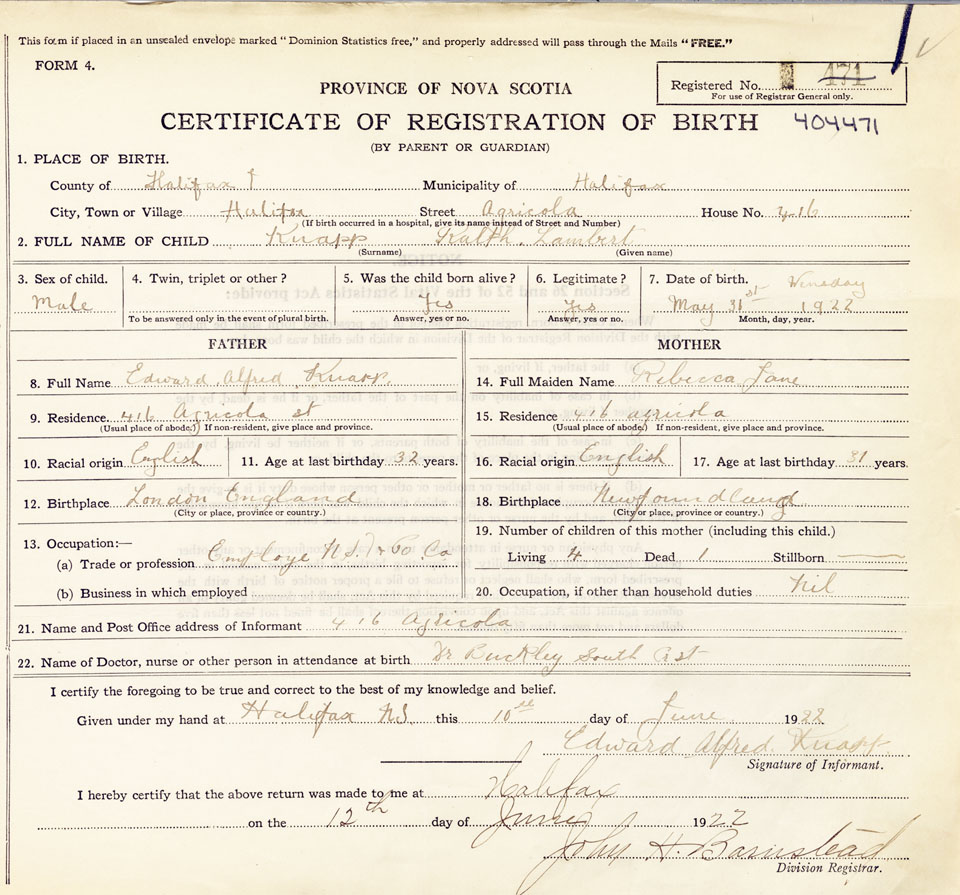 This form if placed in an unsealed envelope marked "Dominion Statistics free," and properly addressed will pass through the Mails "FREE."
FORM 4.
Registered No. 471
For use of Registrar General only.
PROVINCE OF NOVA SCOTIA
CERTIFICATE OF REGISTRATION OF BIRTH 404471
(BY PARENT OR GUARDIAN)
1. PLACE OF BIRTH.
County of Halifax Municipality of Halifax
City, Town or Village Halifax Street Agricola House No. 416
(If birth occurred in a hospital, give its name instead of Street and Number)
2. FULL NAME OF CHILD Knapp Ralph Lambert
(Surname) (Given name)
3. Sex of child. 4. Twin, triplet or other? 5. Was the child born alive? 6. Legitimate? 7. Date of birth. Wensday
Male Yes Yes May 31st 1922
To be answered only in the event of plural birth. Answer, yes or no. Answer, yes or no. Month, day, year.
FATHER MOTHER
8. Full Name Edward Alfred Knapp. 14. Full Maiden Name Rebecca Jane
9. Residence. 416 Agricola st 15. Residence 416 agricola
(Usual place of abode.) If non-resident, give place and province. (Usual place of abode.) If non-resident, give place and province.
10. Racial origin English 11. Age at last birthday 32 years. 16. Racial origin English 17. Age at last birthday 31 years.
12. Birthplace London England 18. Birthplace Newfoundland
(City or place, province or country.) (City or place, province or country.)
13. Occupation:— 19. Number of children of this mother (including this child.)
(a) Trade or profession Employe N.S. Co Living 4 Dead 1 Stillborn
(b) Business in which employed 20. Occupation, if other than household duties Nil
21. Name and Post Office address of Informant 416 Agricola
22. Name of Doctor, nurse or other person in attendance at birth Dr Buckley South st
I certify the foregoing to be true and correct to the best of my knowledge and belief.
Given under my hand at Halifax NS this 10th day of June 1922
Edward Alfred Knapp.
Signature of Informant.
I hereby certify that the above return was made to me at Halifax
on the 12th day of June 1922
John H. Barnstead
Division Registrar.